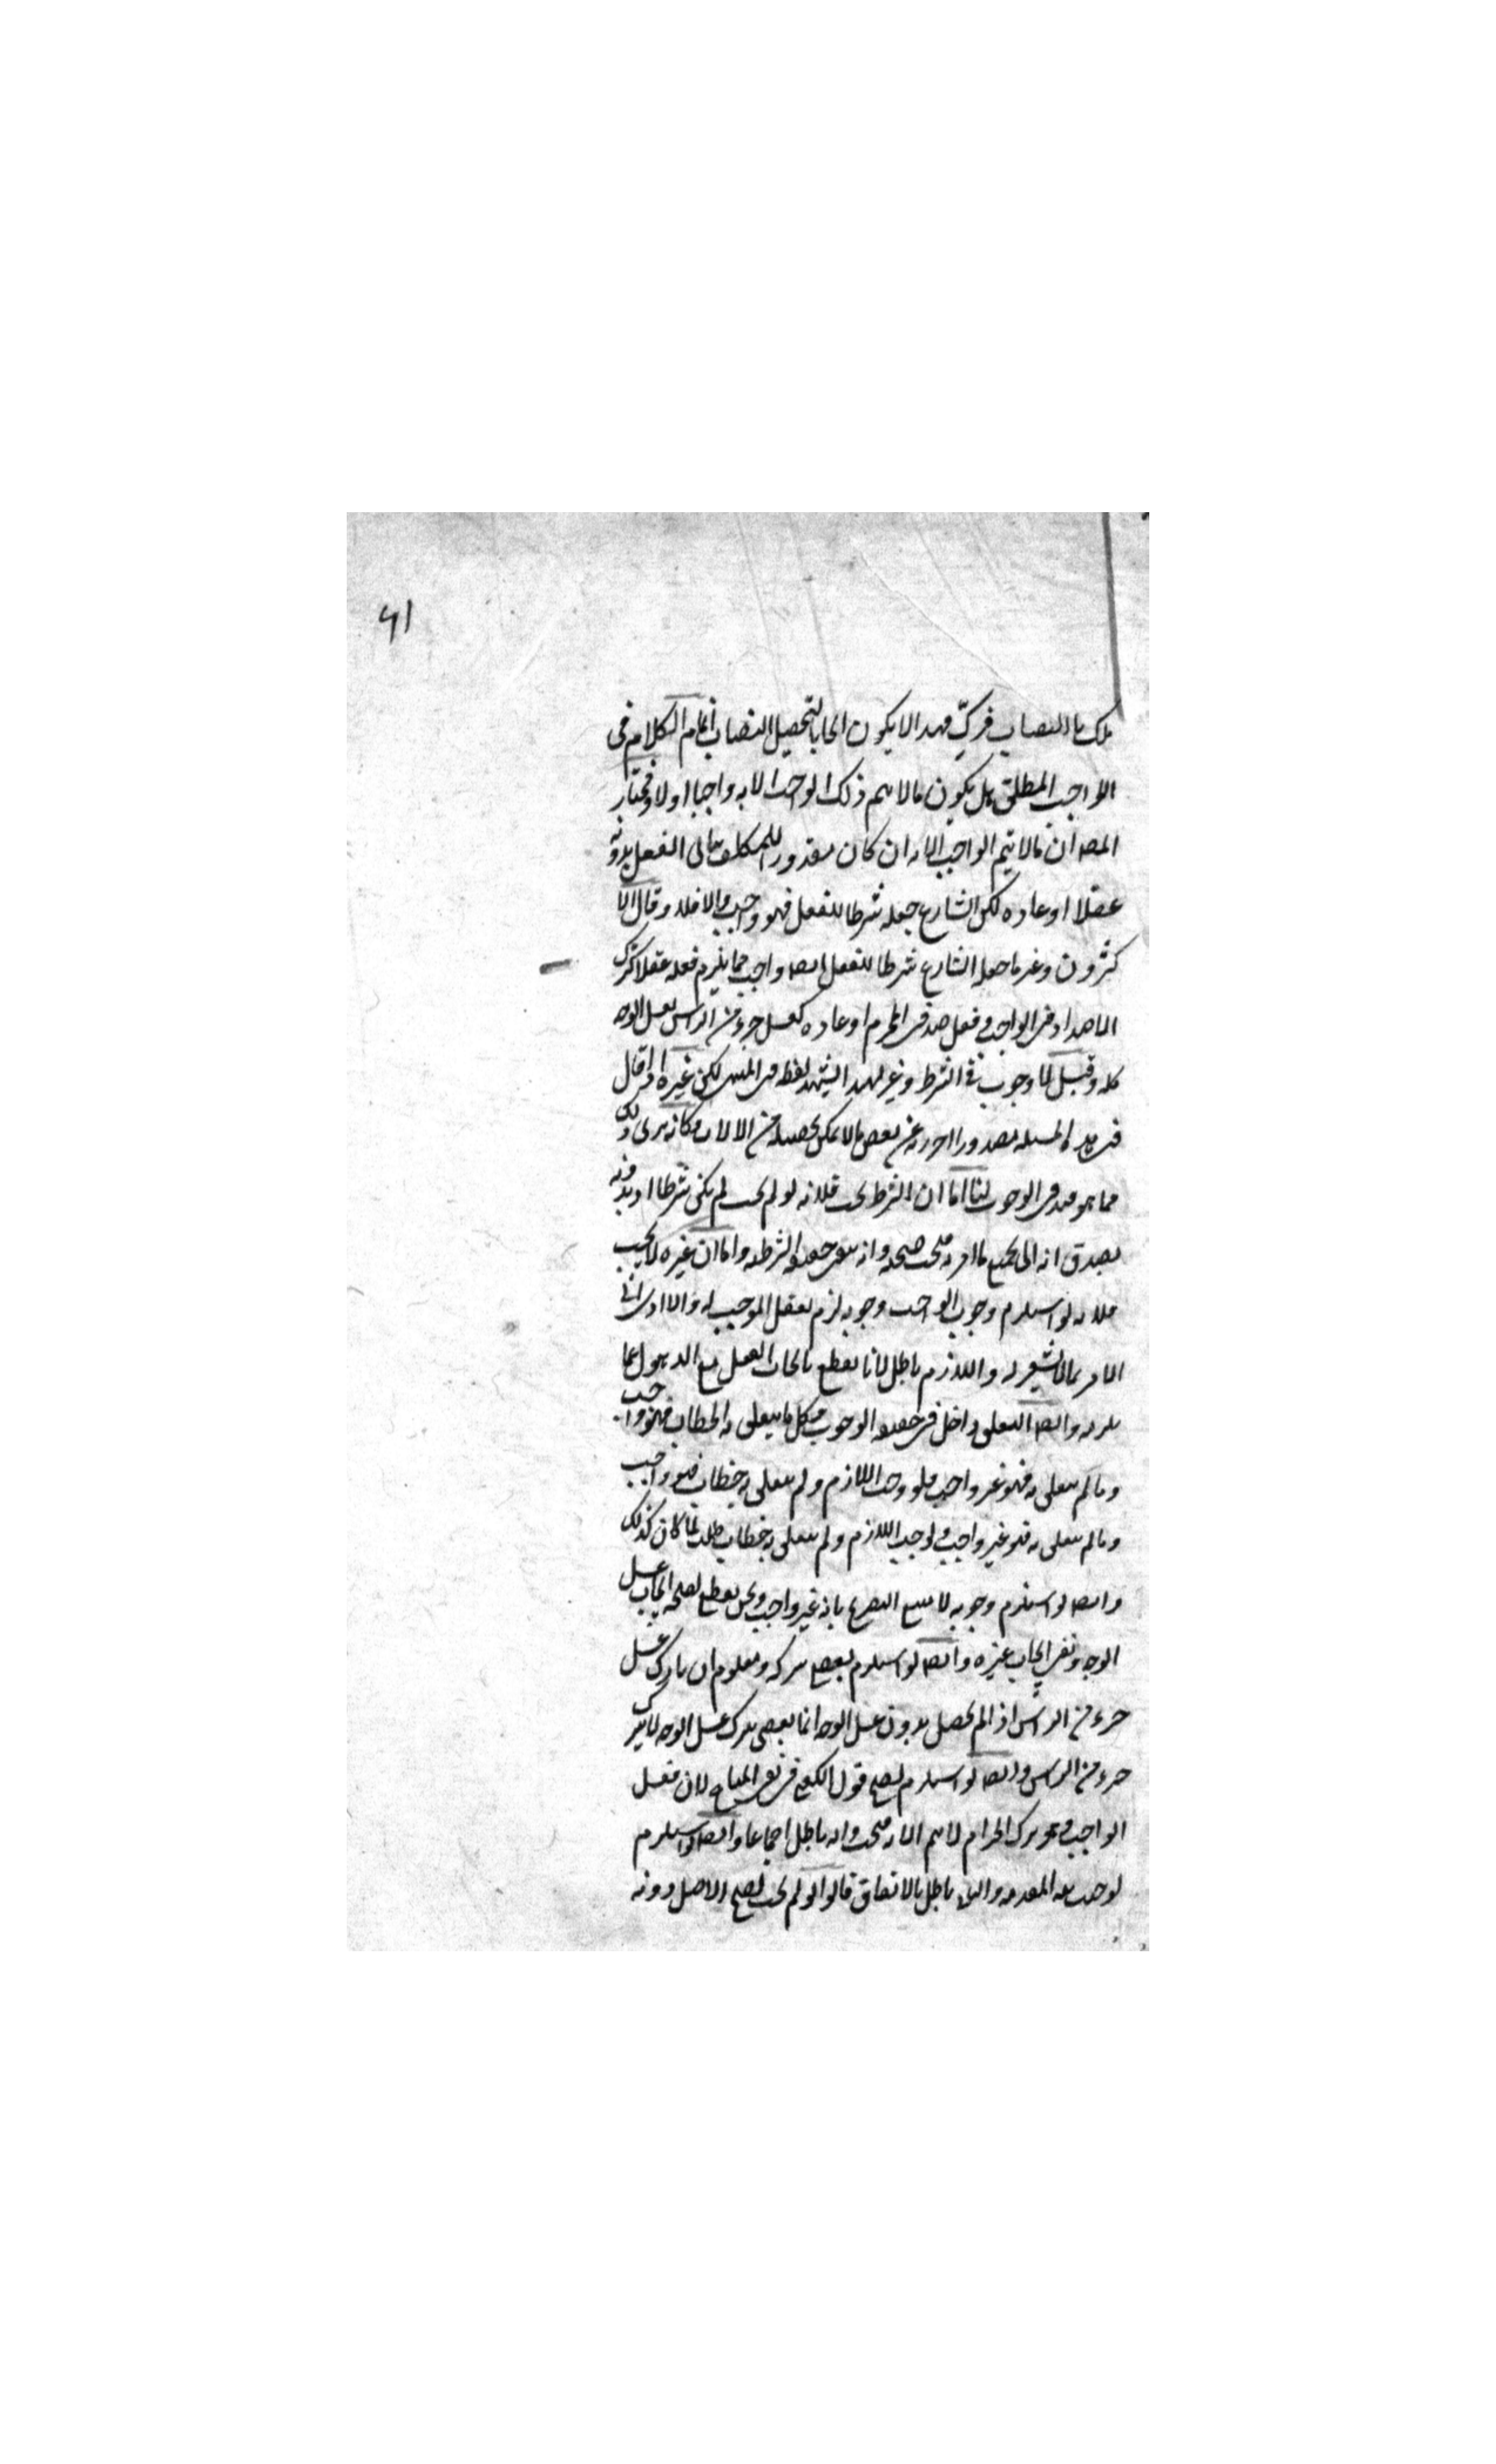 ٦١
ملكت النصاب فزكّ فهذا لا يكون ايجابا لتحصيل النصاب انما الكلام فى
الواجب المطلق هل يكون ما لا يتم ذلك الواجب الا به واجبا او لا فمختار
المصه ان ما لا يتم الواجب الا به ان كان مقدورا للمكلف يتأتى الفعل بدونه
عقلا او عادة لكن الشارع جعله شرطا للفعل فهو واجب والا فلا وقال الا
كثرون وغير ما جعله الشارع شرطا للفعل ايضا واجب مما يلزم فعله عقلا كترك
الاضداد فى الواجب وفعل ضد فى المحرم او عادة كغسل جزء من الراس لغسل الوجه
كله وقيل لا وجوب فى الشرط وغيره
فى هذه المسئلة مقدورا احترز به عن بعض ما لا يمكن تحصيله من الالات وكانه يرى ذلك
مما هو قيد فى الوجوب لنا اما ان الشرط يجب فلانه لو لم يجب لم يكن شرطا اذ بدونه
يصدق انه اتى بجميع ما امر به فيجب صحته وانه ينفى حقيقة الشرطية واما ان غيره لا يجب
فلانه لو استلزم وجوب الواجب وجوبه لزم تعقل الموجب له والا ادى الى
الامر بما لا يشعر به واللازم باطل لانا نقطع بايجاب الفعل مع الذهول عما
يلزمه وايضا التعلق داخل فى حقيقة الوجوب فكل ما يتعلق به الخطاب فهو واجب
وما لم يتعلق به فهو غير واجب فلو وجب اللازم ولم يتعلق به خطاب فهو واجب
وما لم يتعلق به فهو غير واجب ولو وجب اللازم ولم يتعلق به خطاب طلب لما كان كذلك
وايضا لو استلزم وجوبه لامتنع التصريح بانه غير واجب ونحن نقطع بصحة ايجاب غسل
الوجه ونفى ايجاب غيره وايضا لو استلزم لعصى بتركه ومعلوم ان تارك غسل
جزء من الراس اذا لم يحصل بدون غسل الوجه انما يعصى بترك غسل الوجه لا بترك
جزء من الراس وايضا لو استلزم لصح قول الكعبى فى نفى المباح لان فعل
الواجب وهو ترك الحرام لا يتم الا به فيجب وانه باطل اجماعا وايضا لو استلزم
لوجب نية المقدمة والتالى باطل بالاتفاق قالوا لو لم يجب لصح الاصل دونه